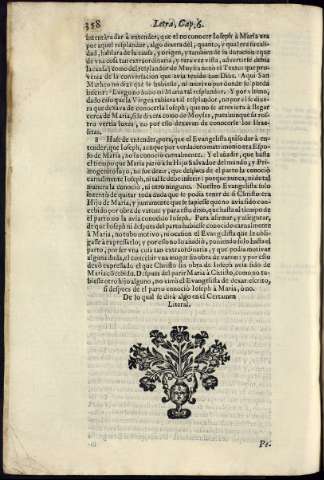 358 Letra, Cap. 6.
intentara dàr à entender, que el no conocer Ioseph à Maria era
por aquel resplandor, algo dixera del; quanto, y qual era su cali-
dad, hablara de la causa, y origen, y tambien de la duracion (que
de vna cosa tan extraordinaria, y rara vez vista, advertirse debia
la causa) como del resplandor de Moyses notò el Texto que pro-
venia de la conversacion que avia tenido con Dios. Aqui San
Matheo no dize que le huviesse, ni motivo por donde se pueda
inferir: Luego no huvo en Maria tal resplandor. Y por vltimo,
dado caso que la Virgen tubiera tal resplandor, no por esso
dexava de conocerla Ioseph; que no se atreviera à llegar
cerca de Maria, si le diera como de Moyses, que
vertia luzes, no por esso dexavan de conocerle los Israe-
litas.
2 Hase de entender, pues, que el Evangelista quiso dàr à en-
tender, que Ioseph, aunque por verdadero matrimonio era Espo-
so de Maria, no la conociò carnalmente. Y el añadir, que hasta
el tiempo que Maria pariò à su Hijo Salvador del mundo, y Pri-
mogenito suyo, no fue dezir, que despues del parto la conociò
carnalmente Ioseph, ni tal se debe inferir: porque nunca, ni de tal
manera la conociò, ni otro ninguno. Nuestro Evangelista solo
intentò de quitar toda duda que se podia tener de si Christo era
Hijo de Maria, y juntamente que se supiesse que no avia sido con-
cebido por obra de varon; y para esto dixo, que hasta el tiempo de
el parto no la avia conocido Ioseph. Para afirmar, y assegurar,
de que Ioseph ni despues del parto huviesse conocido carnalmente
à Maria, no tubo motivo, ni ocasion el Evangelista que le obli-
gasse à expressarlo; y por esso no lo añadiò, poniendo solo hasta el
parto, por ser vna cosa tan extraordinaria, y que podia motivar
alguna duda, el concebir vna muger sin obra de varon: y por esso
debiò expressarlo el que Christo sin obra de Ioseph avia sido de
Maria cõcebido. Despues del parir Maria à Christo, como no tu-
biesse otro hijo alguno, no tuvo el Evangelista de dexar escrito,
si despues de el parto conociò Ioseph à Maria, ò no.
De lo qual se dirà algo en el Certamen
Literal.
Pe-